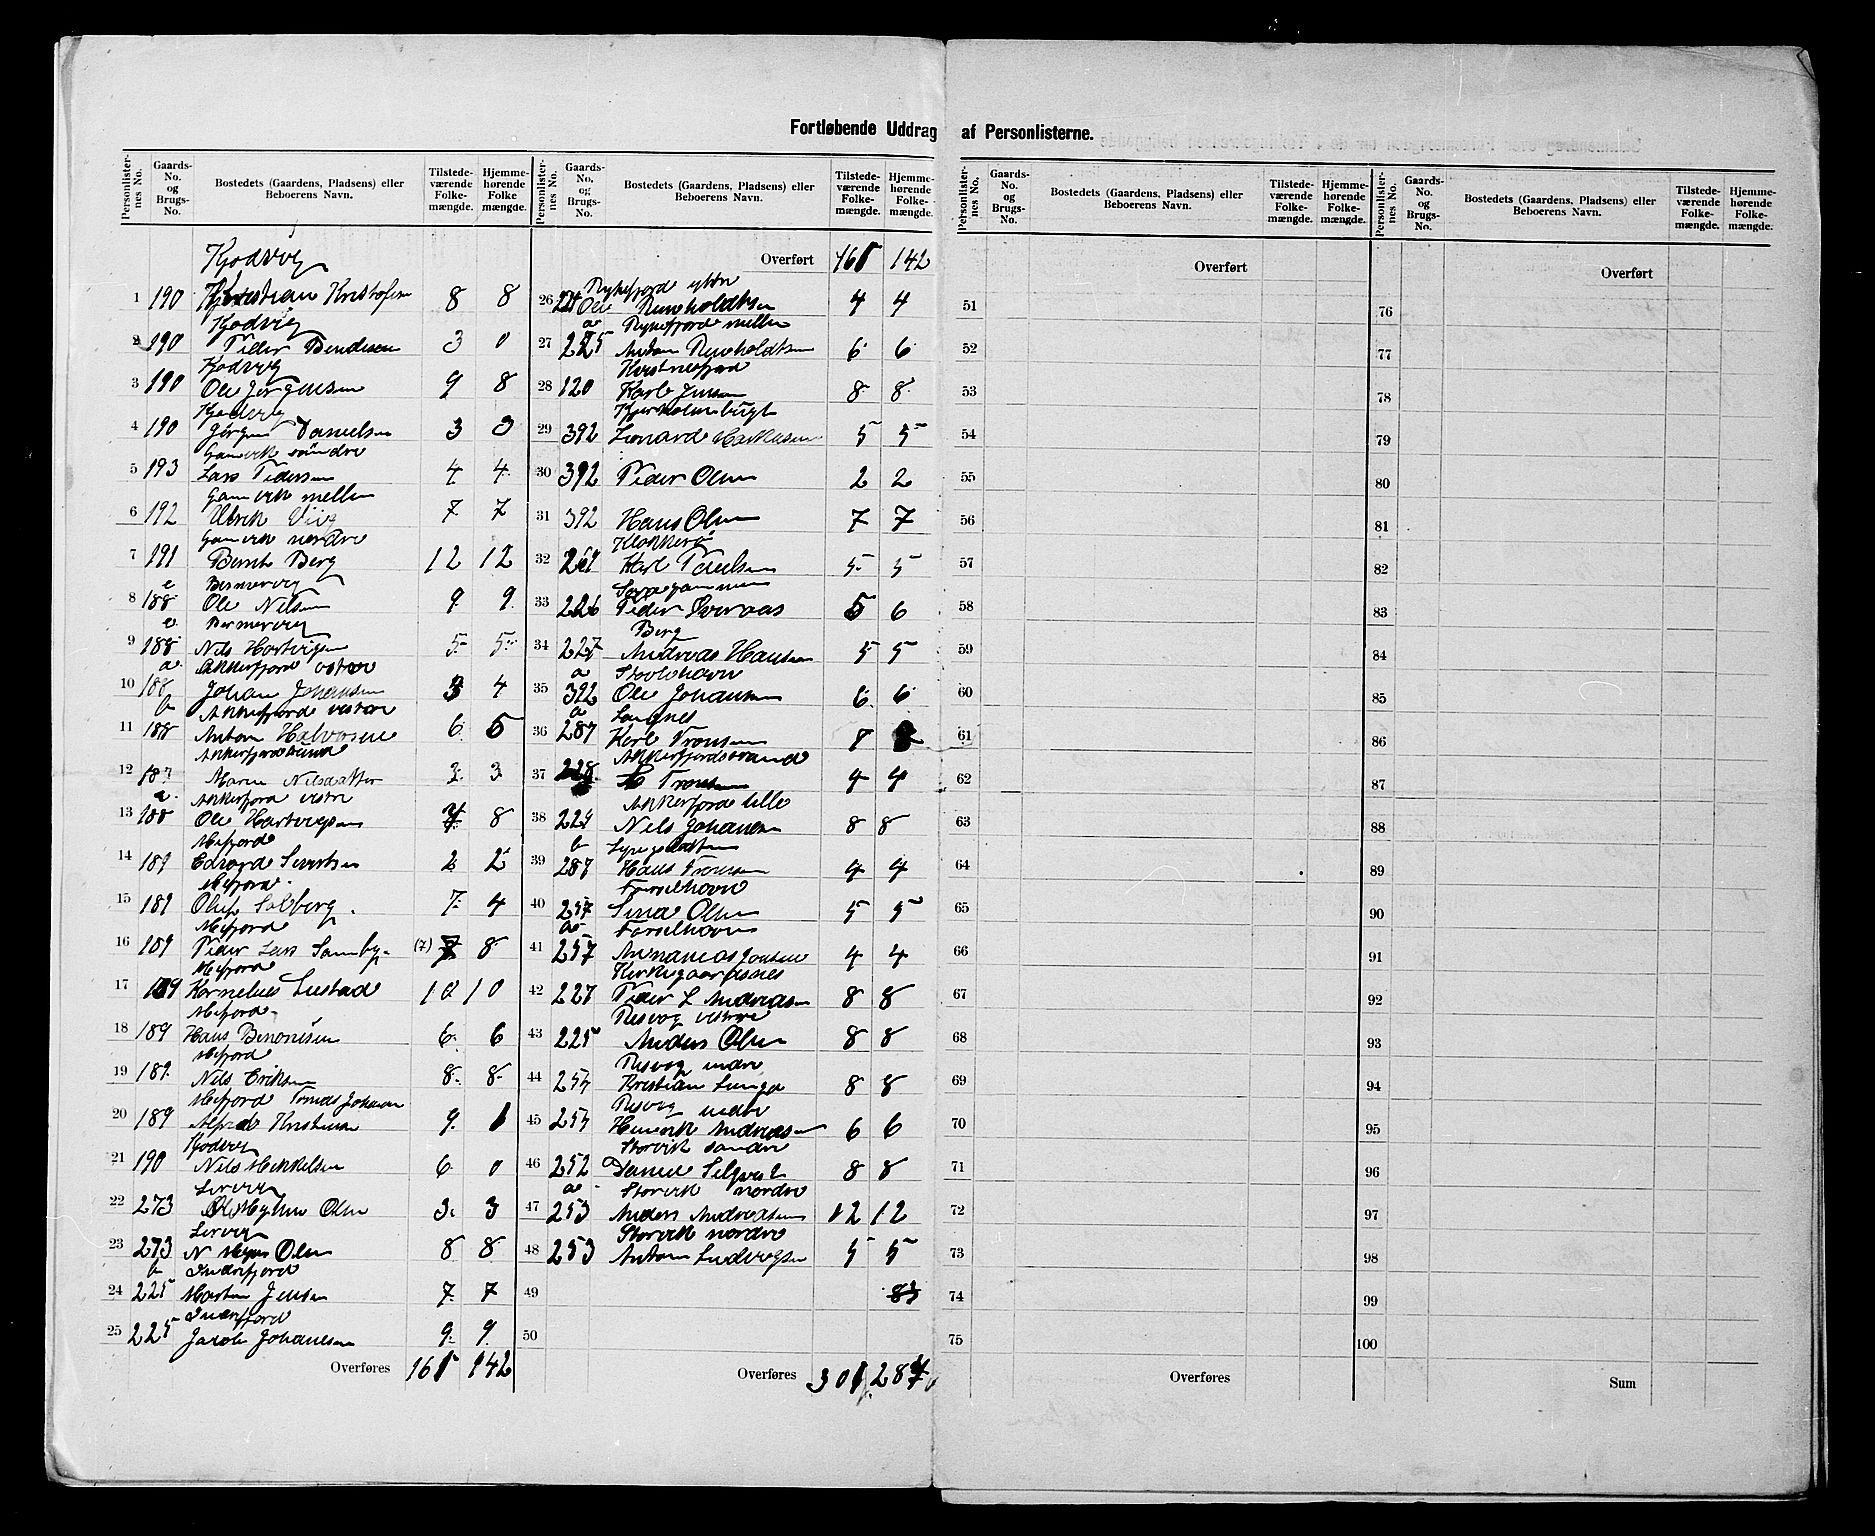 Fortløbende Uddrag af Personlisterne.
Personlister-nes No. Gaards-No. og Brugs-No. Bostedets (Gaardens, Pladsens) eller Beboerens Navn. Tilstede-værende Folke-mængde. Hjemme-hørende Folke mængde.
Kjodvig
1 190 Kristian Kristofersen 8 8
Kjodvig
2 190 Peder Bendiksen 3 0
Kodvig
3 190 Ole Jørgensen 9 8
Kjodvig
4 190 Jørgen Danielsen 3 3
Gamvik søndre
5 193 Lars Pedersen 4 4
Gamvik mellem
6 192 Ulrik Viig 7 7
Gamvik nordre
7 191 Bernt Berg 12 12
Bismervig
8 188 e Ole Nilsen 9 9
Bismervig
9 188 e Nils Hartvigsen 5 5
Akkerfjord vestre
10 188 a Johan Johansen 3 4
Akkerfjord vestre
11 188 b Anton Halvorsen 6 5
Akkerfjordbund
12 187 Maren Nilsdatter 2 3
Akkerfjord vestre
13 188 a Ole Hartvigsen 7 8
Mefjord
14 189 Edvard Sivertsen 2 2
Mefjord
15 189 Oluf Solberg 7 4
Mefjord
16 189 Peder Lars Samby (7) 7 8
Mefjord
17 189 Kornelius Lustad 10 10
Mefjord
18 189 Hans Benonisen 6 6
Mefjord
19 189 Nils Eriksen 8 8
Mefjord Tomas Johansen
20 189 Alfred Kristiansen 9 1
Kjodvig
21 190 Nils Mikkelsen 6 0
Lervig
22 273 Olsen 3 3
Lervig
23 273 N Olsen 8 8
Indrefjord
24 225 b Morten Jensen 7 7
Indrefjord
25 225 Jacob Johannesen 9 9
Overføres 161 142
Personlister-nes No. Gaards-No. og Brugs-No. Bostedets (Gaardens, Pladsens) eller Beboerens Navn. Tilstede-værende Folke-mængde. Hjemme-hørende Folke-mængde.
Overført 161 142
Rykefjord ytre
26 224 Ole Reinholdtsen 4 4
Rykefjord mellem
27 225 a Anton Reinholdtsen 6 6
Kvitnesfjord
28 120 Karl Jensen 8 8
Kjerholmsbugt
29 392 Leonard 5 5
30 392 Peder Olsen 2 2
31 392 Hans Olsen 7 7
Klokkerø
32 261 Karl Paulsen 5 5
33 226 Peder Overaas 5 6
Berg
34 227 Andreas Hansen 5 5
35 392 a Ole Johansen 6 6
Langnes
36 287 a Karl Tronsen 8 8
Akkerfjordstrand
37 228 Tronsen 4 4
Akkerfjord lille
38 229 Nils Johansen 8 8
39 287 b Hans Tronsen 4 4
Forsølhavn
40 257 Sina Olsen 5 5
Forsølhavn
41 257 a Annanias 4 4
Kirkegaardsnes
42 227 Peder L Andreassen 8 8
Risvog vestre
43 225 Anders Olsen 8 8
Risvog indre
44 254 Kristian Lunga 8 8
Risvog indre
45 254 Henrik Andreassen 6 6
Storvik søndre
46 252 Daniel Silfvest 8 8
Storvik nordre
47 253 a Anders Andreassen 12 12
Storvik nordre
48 253 Anton Ludvigsen 5 5
49 83
50
Overføres 301 287
Personlister-nes No. Gaards-No. og Brugs-No. Bostedets (Gaardens, Pladsens) eller Beboerens Navn. Tilstede-værende Folke-mængde. Hjemme-hørende Folke-mængde.
Overført
51
52
53
54
55
56
57
58
59
60
61
62
63
64
65
66
67
68
69
70
71
72
73
74
75
Overføres
Personlister-nes No. Gaards-No. og Brugs-No. Bostedets (Gaardens, Pladsens) eller Beboerens Navn. Tilstede-værende Folke-mængde. Hjemme-hørende Folke-mængde.
Overført
76
77
78
79
80
81
82
83
84
85
86
87
88
89
90
91
92
93
94
95
96
97
98
99
100
Sum